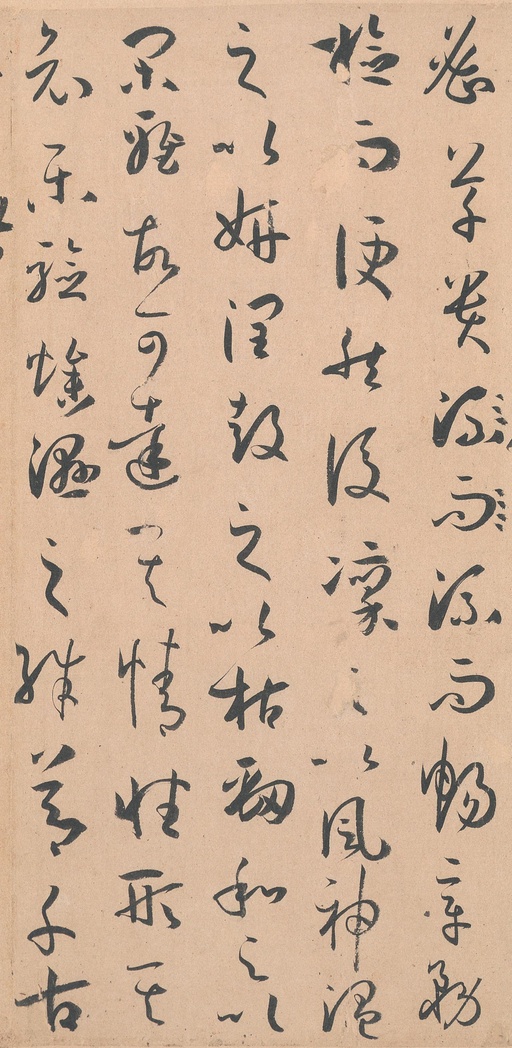 密草貴流而流而暢章務
檢而便然後凜之以風神溫
之以妍潤鼓之以枯勁和之以
閑雅故可達其情性形其
哀樂驗燥濕之殊節千古